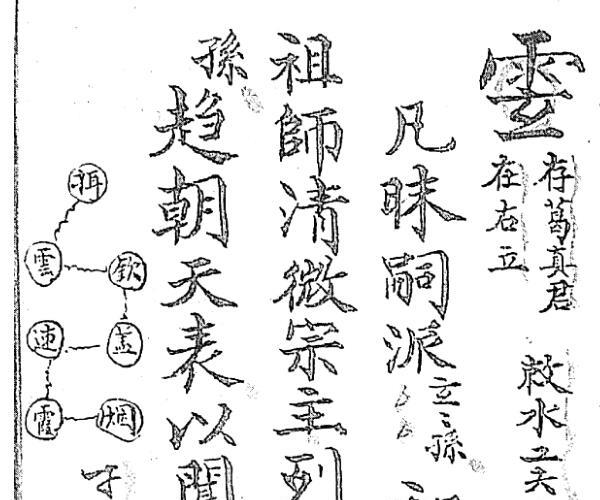 雲
存葛真君
在右立
水
凡昧嗣派
孫
祖師清微宗主列
孫
趋朝天表以聞
雲
欽
盖
霞
烟